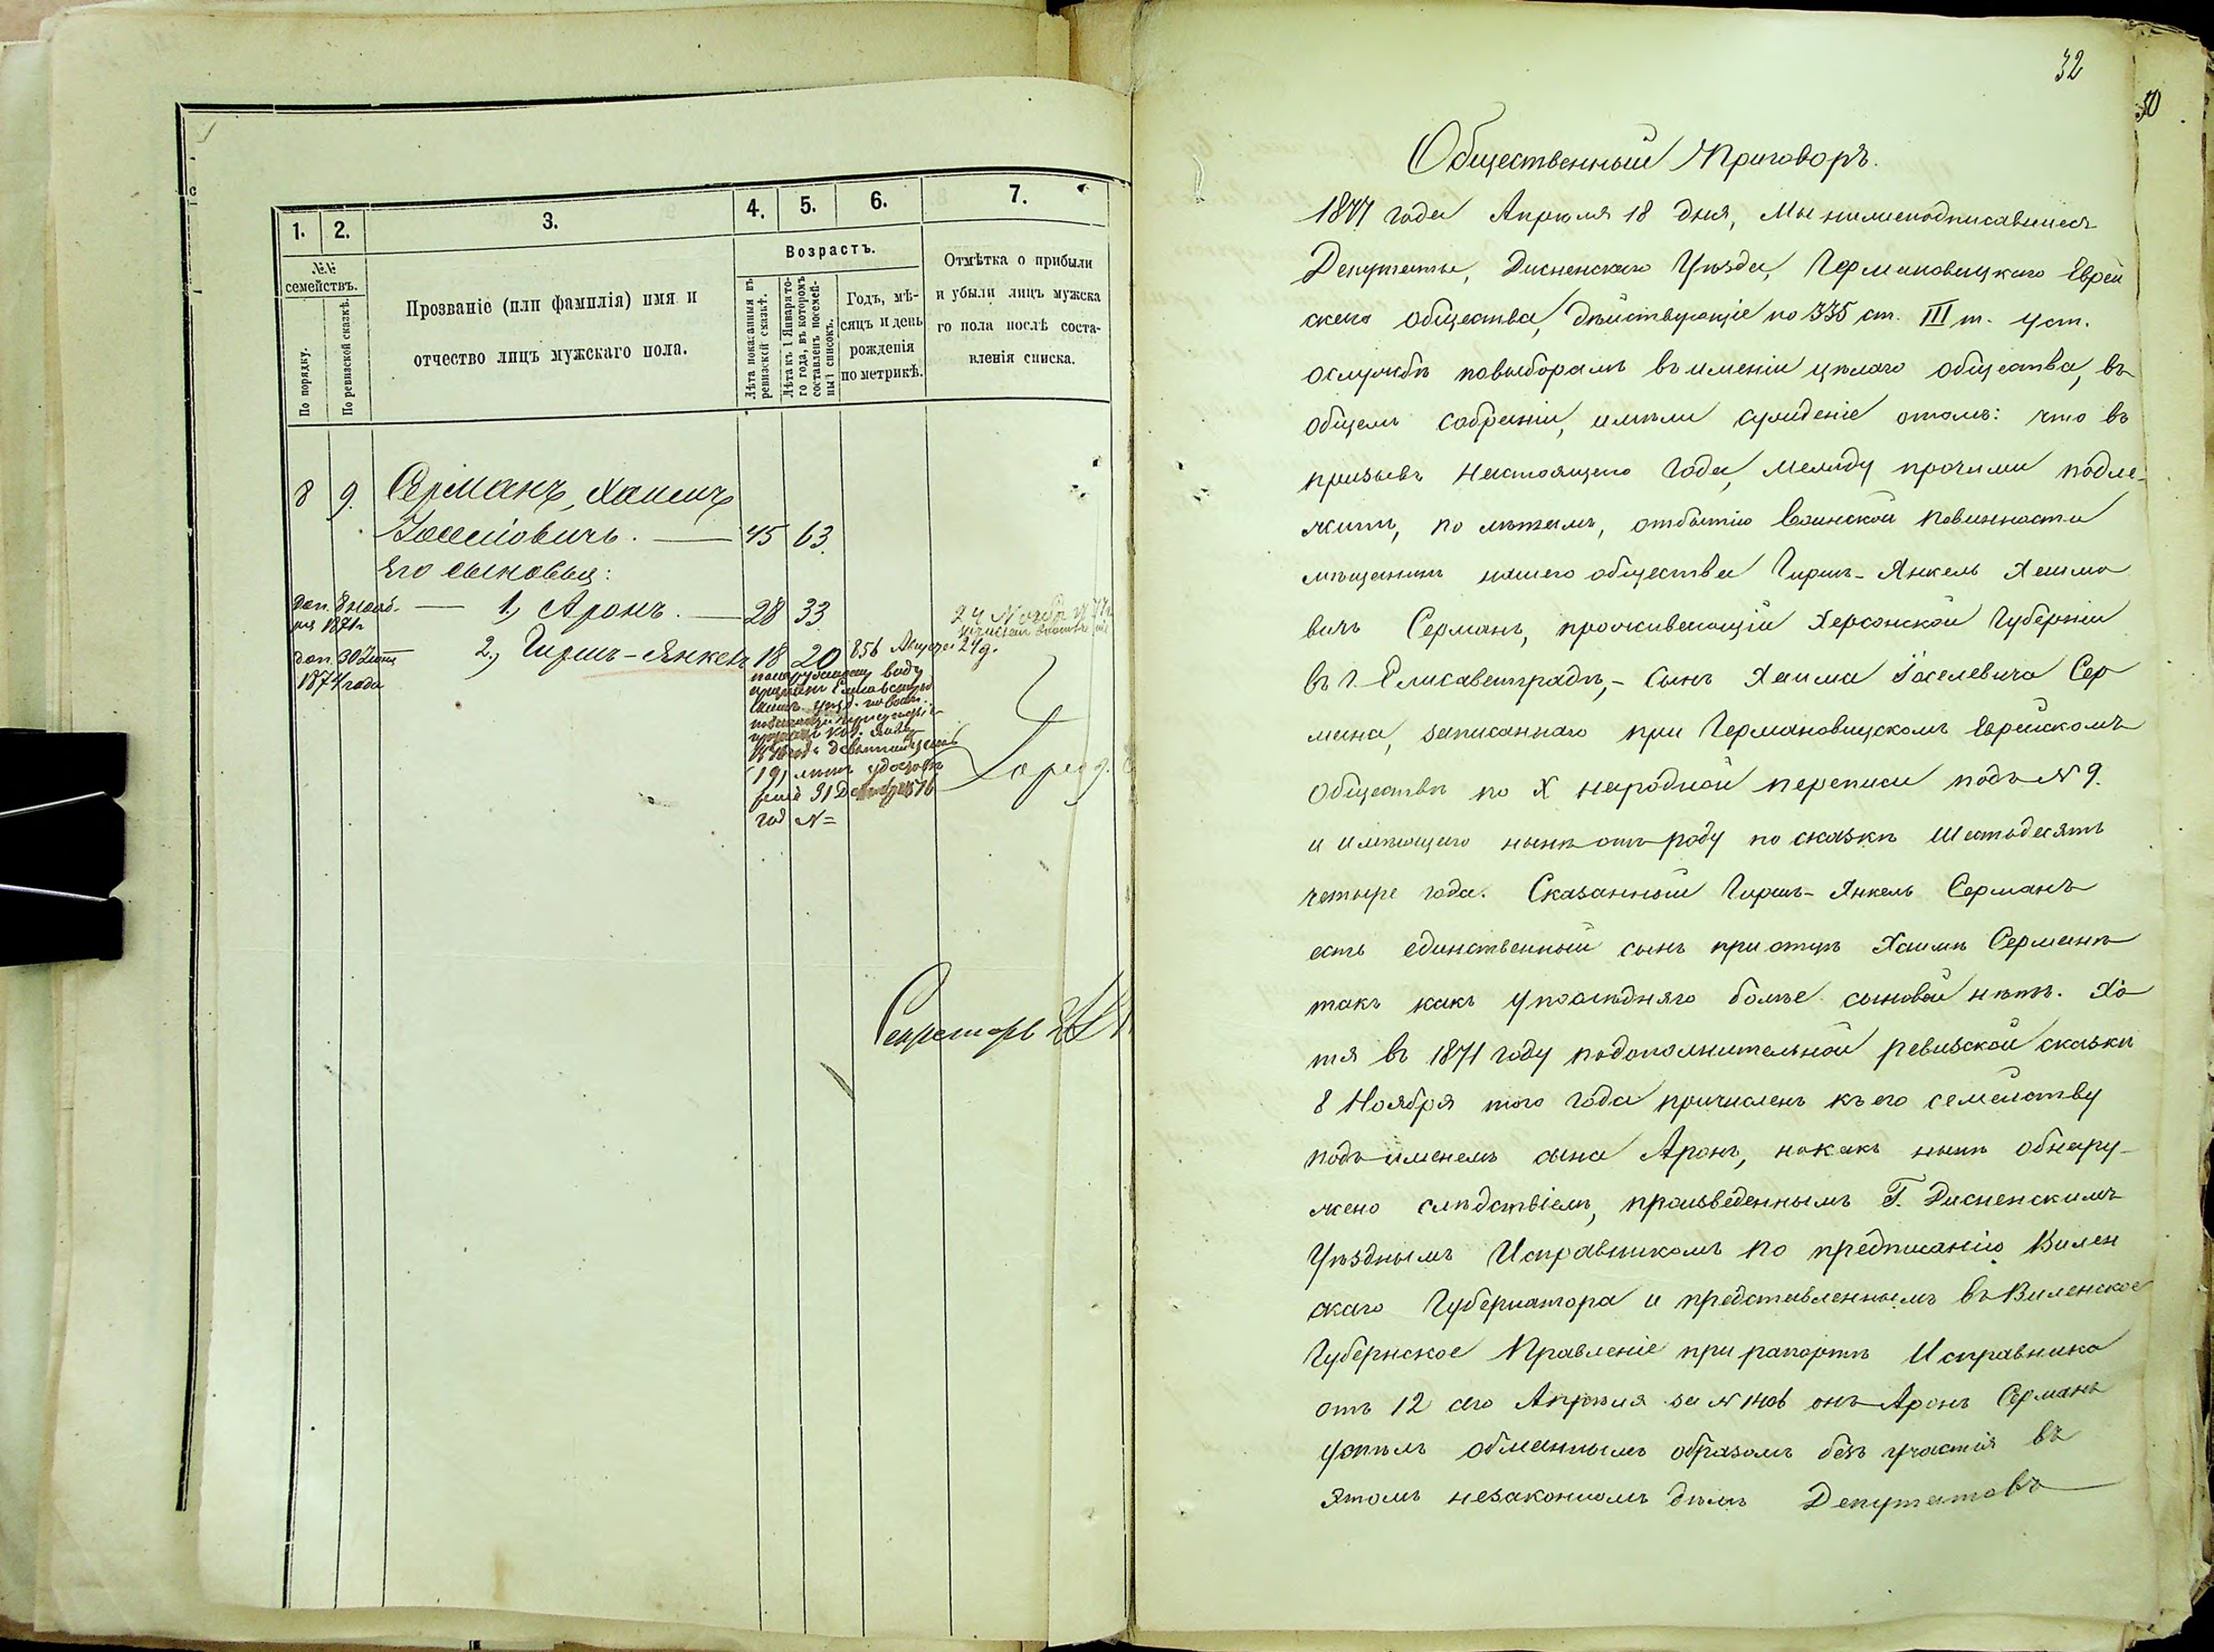 1.
2.
3.
4.
5.
6.
7.
№№
семействъ.
По порядку.
По ревизской сказкѣ.
Прозваніе (или фамилія) имя и
отчество лицъ мужскаго пола.
Возрастъ.
Лѣта показанныя въ
ревизской сказкѣ.
Лѣта къ 1 Января то-
го года, въ которомъ
составленъ посемей-
ный списокъ.
Годъ, мѣ-
сяцъ и день
рожденія
по метрикѣ.
Отмѣтка о прибыли
и убыли лицъ мужска
го пола послѣ соста-
вленія списка.
8 9. Серманъ, Хаимъ
Іоселіовичъ. — 45 63.
Его сыновья:
доп. 8 нояб.
ря 1871 г — 1., Аронъ. — 28 33
доп. 30 Іюня
1874 года 2., Гиршъ-Янкель 18 20 856 Августа 24 д.
Секретарь
32
30
Общественный Приговоръ.
1877 года Апрѣля 18 дня, Мы нижеподписавшіеся
Депутаты, Дисненскаго Уѣзда, Германовицкаго Еврей
скаго общества, дѣйствующіе по 335 ст. III т. уст.
ослужбѣ повыборамъ въ имени цѣлаго общества, въ
общемъ собраніи, имѣли сужденіе отомъ: что въ
призывъ настоящего года, между прочими подле-
житъ, по лѣтамъ, отбытію воинской повинности
мѣщанинъ нашего общества Гиршъ-Янкель Хаимо
вичъ Серманъ, проживающій Херсонской Губерніи
въ г. Елисаветградѣ, - сынъ Хаима Іоселевича Сер
мана, записаннаго при Германовицкомъ Еврейскомъ
Обществѣ по X народной переписи подъ № 9.
и имѣющаго нынѣ отъ роду по сказкѣ шестьдесятъ
четыре года. Сказанный Гиршъ-Янкель Серманъ
есть единственный сынъ при отцѣ Хаимѣ Серманѣ
такъ какъ упослѣдняго болѣе сыновей нѣтъ. Хо
тя въ 1871 году подополнительной ревизской сказкѣ
8 Ноября того года причисленъ къ его семейству
подъ именемъ сына Аронъ, нокакъ нынѣ обнару-
жено слѣдствіемъ, произведеннымъ Г. Дисненскимъ
Уѣзднымъ Исправникомъ по предписанію Вилен
скаго Губернатора и представленнымъ въ Виленское
Губернское Правленіе при рапортѣ Исправника
отъ 12 сего Апрѣля за № онъ Аронъ Серманъ
успѣлъ обманнымъ образомъ безъ участія въ
этомъ незаконномъ дѣлѣ Депутатовъ